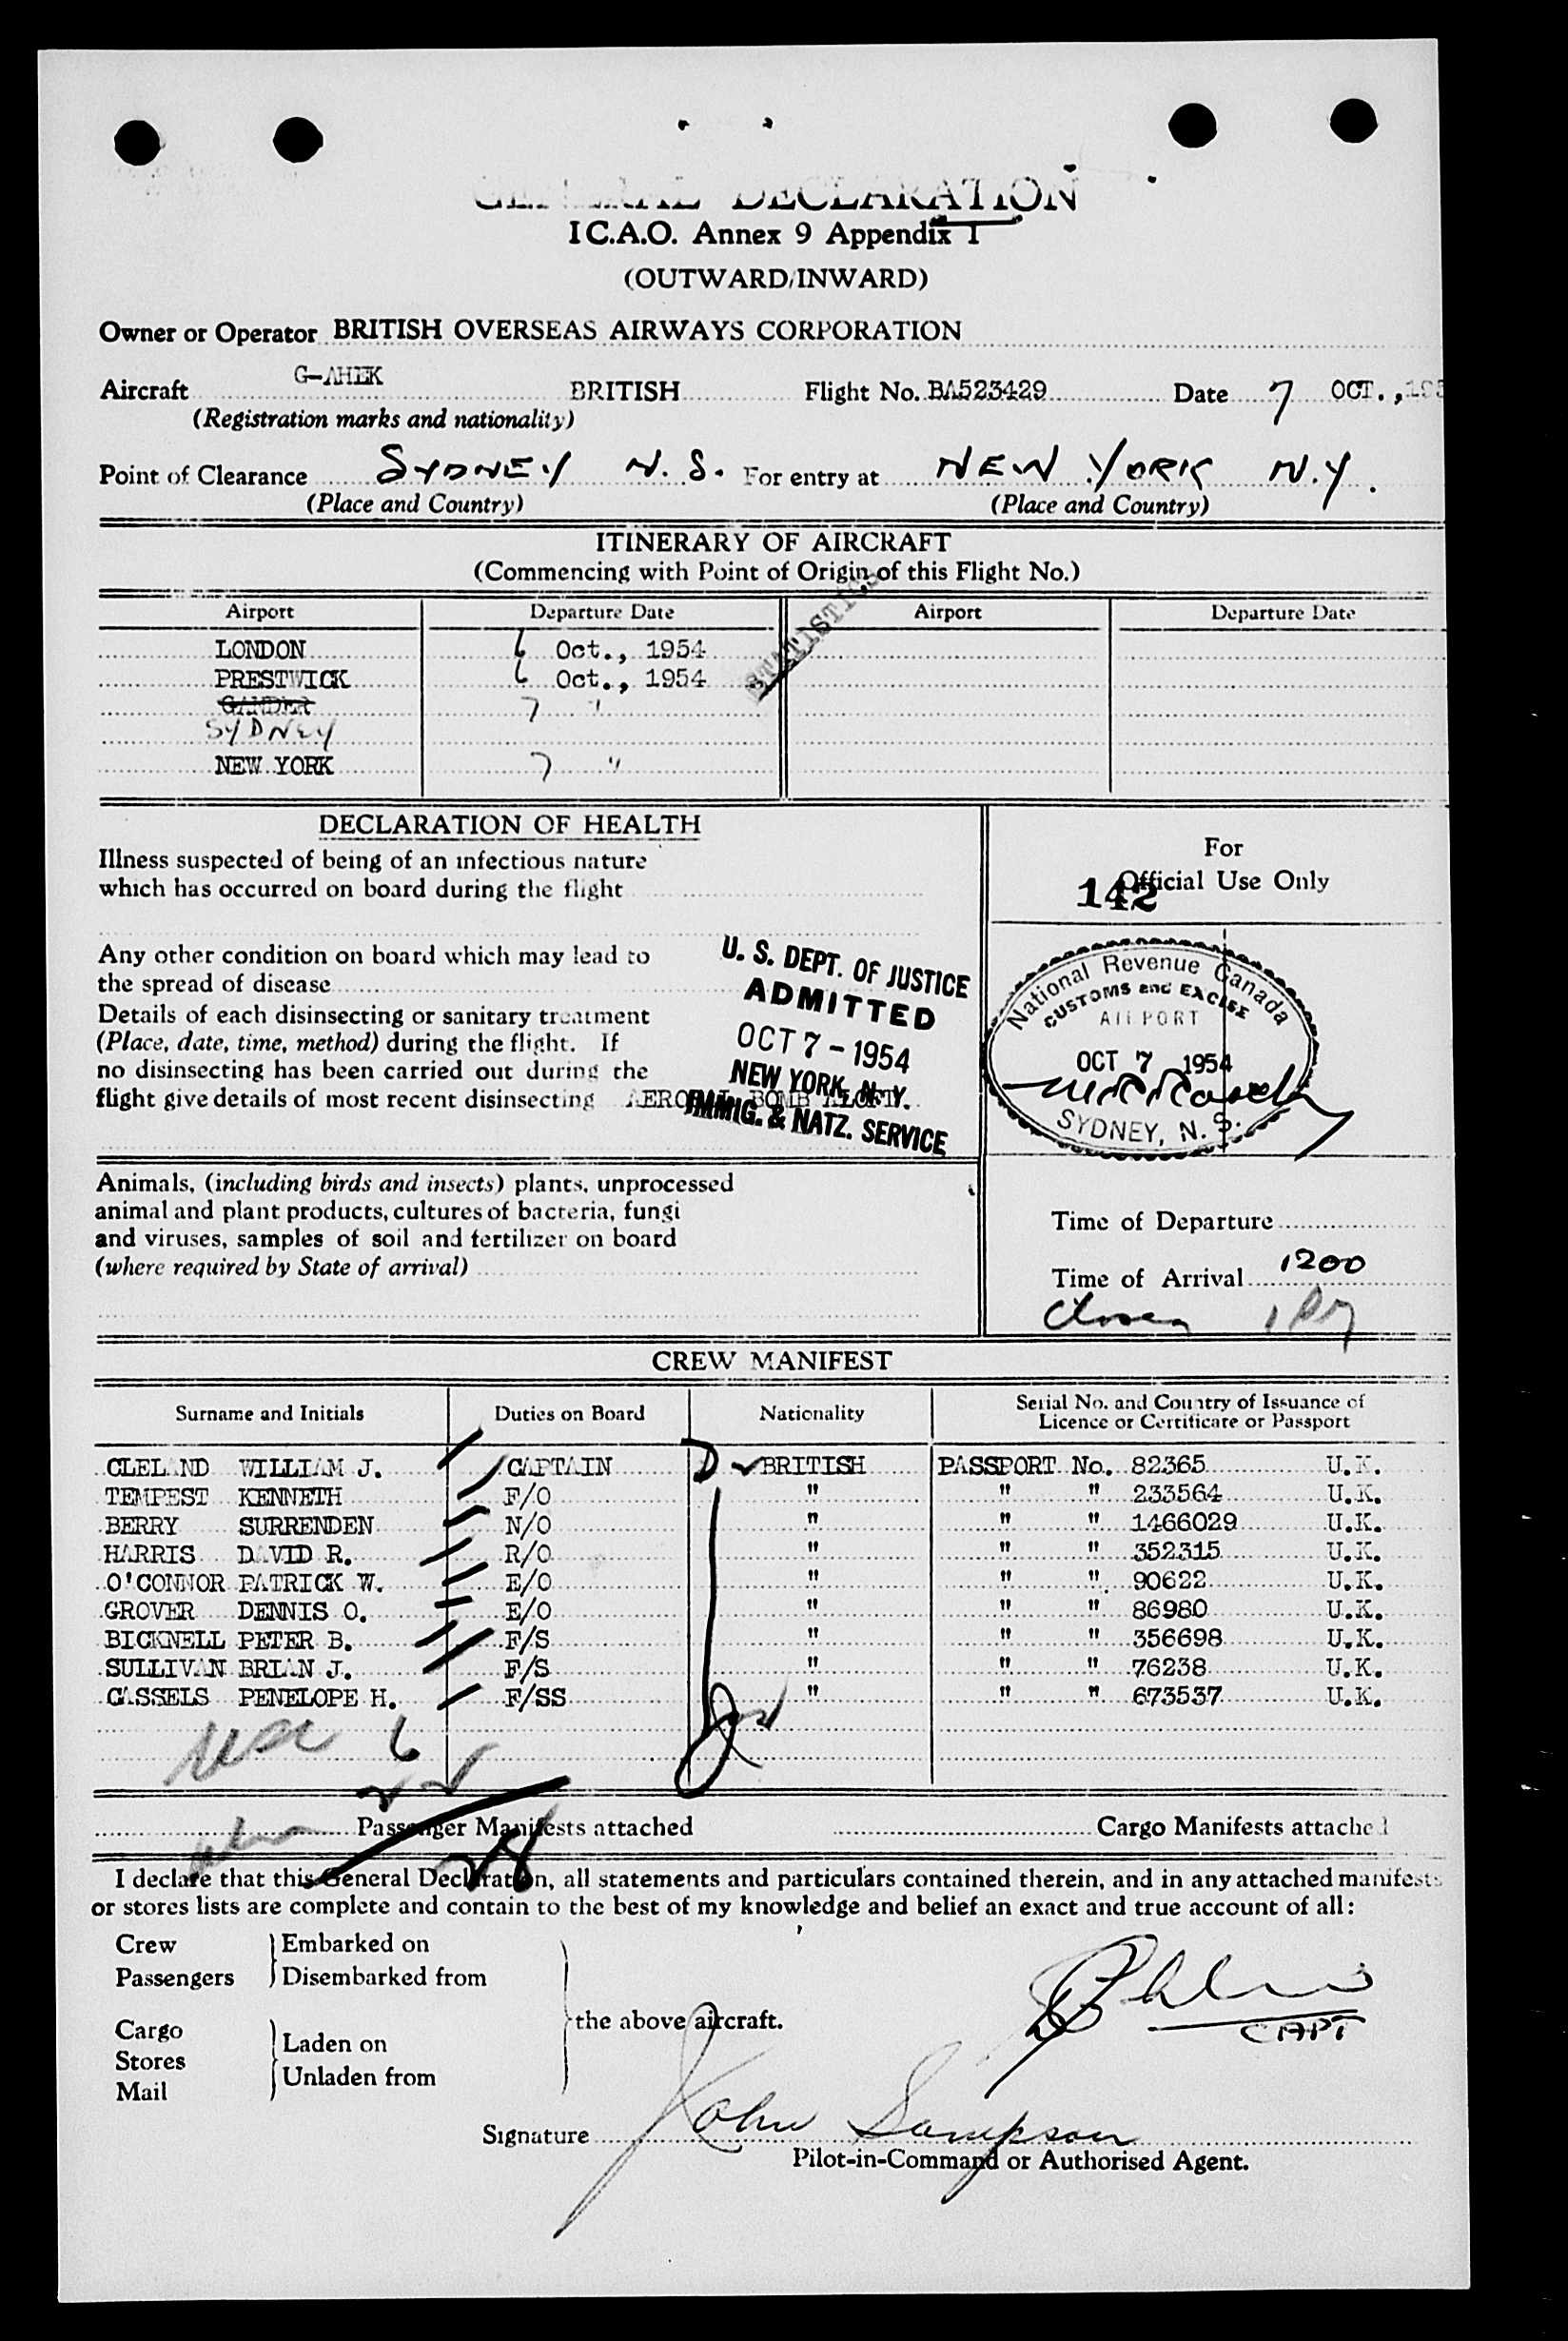 GENERAL DECLARATION
I C.A.O. Annex 9 Appendix 1
(OUTWARD/INWARD)
Owner or Operator BRITISH OVERSEAS AIRWAYS CORPORATION
Aircraft G-AHEK BRITISH Flight No. BA523429 Date 7 OCT., 195
(Registration marks and nationality)
Point of Clearance SYDNEY N.S. For entry at NEW YORK N.Y.
(Place and Country) (Place and Country)
ITINERARY OF AIRCRAFT
(Commencing with Point of Origin of this Flight No.)
STATISTICS
Airport Departure Date Airport Departure Date
LONDON 6 Oct., 1954
PRESTWICK 6 Oct., 1954
GANDER 7 "
SYDNEY
NEW YORK 7 "
DECLARATION OF HEALTH
Illness suspected of being of an infectious nature
which has occurred on board during the flight
Any other condition on board which may lead to
the spread of disease
Details of each disinsecting or sanitary treatment
(Place, date, time, method) during the flight. If
no disinsecting has been carried out during the
flight give details of most recent disinsecting AEROSOL BOMB ALOFT.
U. S. DEPT. OF JUSTICE
ADMITTED
OCT 7 - 1954
NEW YORK, N. Y.
IMMIG. & NATZ. SERVICE
For
Official Use Only
142
National Revenue Canada
CUSTOMS and EXCISE
AIRPORT
OCT 7 1954
SYDNEY, N. S.
Animals, (including birds and insects) plants, unprocessed
animal and plant products, cultures of bacteria, fungi
and viruses, samples of soil and fertilizer on board
(where required by State of arrival)
Time of Departure
Time of Arrival 1200
CREW MANIFEST
Surname and Initials Duties on Board Nationality Serial No. and Country of Issuance of
Licence or Certificate or Passport
CLELAND WILLIAM J. CAPTAIN D BRITISH PASSPORT No. 82365 U.K.
TEMPEST KENNETH F/O " " " 233564 U.K.
BERRY SURRENDEN N/O " " " 1466029 U.K.
HARRIS DAVID R. R/O " " " 352315 U.K.
O'CONNOR PATRICK W. E/O " " " 90622 U.K.
GROVER DENNIS O. E/O " " " 86980 U.K.
BICKNELL PETER B. F/S " " " 356698 U.K.
SULLIVAN BRIAN J. F/S " " " 76238 U.K.
CASSELS PENELOPE H. F/SS " " " 673537 U.K.
6
22
Passenger Manifests attached Cargo Manifests attached
28
I declare that this General Declaration, all statements and particulars contained therein, and in any attached manifests
or stores lists are complete and contain to the best of my knowledge and belief an exact and true account of all:
Crew Embarked on
Passengers Disembarked from
the above aircraft.
Cargo
Stores Laden on
Mail Unladen from
CAPT
Signature John Sampson
Pilot-in-Command or Authorised Agent.